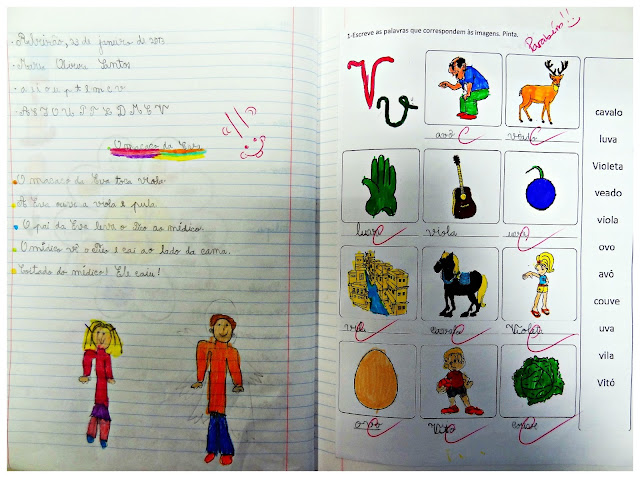 Ribeirão, 23 de janeiro de 2013
Maria Oliveira Santos
a i í o u p t l m c v
A E I O U P T L D M C V
O macaco da Eva
O macaco da Eva toca viola.
A Eva ouve a viola e pula.
O pai da Eva leva o Tio ao médico.
O médico vê o Tio e cai ao lado da cama.
Coitado do médico! Ele caiu!
1-Escreve as palavras que correspondem às imagens. Pinta.
Parabéns!!
V v
avô
veado
luva
viola
uva
vila
cavalo
Violeta
ovo
Vitó
couve
cavalo
luva
Violeta
veado
viola
ovo
avô
couve
uva
vila
Vitó